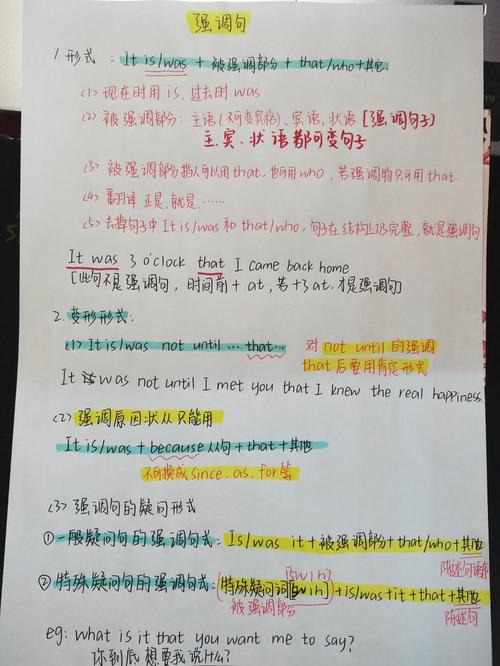 强调句
1. 形式：It is/was + 被强调部分 + that/who + 其它.
(1) 现在时用is, 过去时was
(2) 被强调部分：主语(不可变宾格)、宾语、状语 [强调句子]
主、宾、状语都可变句子
(3) 被强调部分指人可以用that, 也可用who, 若强调物只可用that.
(4) 翻译 正是, 就是……
(5) 去掉句子中It is/was 和that/who, 句子在结构上仍完整, 就是强调句
It was 3 o'clock that I came back home
[此句不是强调句, 时间前+at, 若+了at, 才是强调句]
2. 变形形式：
(1) It is/was not until … that…
对 not until 的强调
that后要用肯定形式
It was not until I met you that I knew the real happiness.
(2) 强调原因状从只能用
It is/was + because从句 + that + 其他
不可换成since. as. for等
(3) 强调句的疑问形式
① 一般疑问句的强调句式：Is/was it + 被强调部分 + that/who + 其他
陈述句语序
② 特殊疑问句的强调句式：(特殊疑问词[5w1h]) + is/was + it + that + 其他
被强调部分
陈述句
eg: what is it that you want me to say?
你到底想要我说什么?